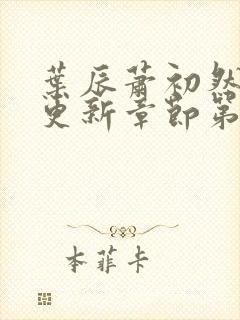 葉辰蕭初然
更新章節第
本菲卡